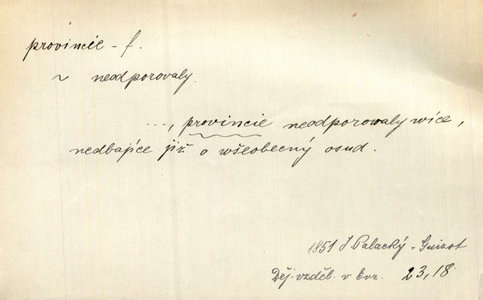 provincie - f.
~ neodporovaly.
..., provincie neodporowaly wíce,
nedbajíce již o wšeobecný osud.
1851 J Palacký - Guizot
Děj. vzděl. v Evr. 23,18